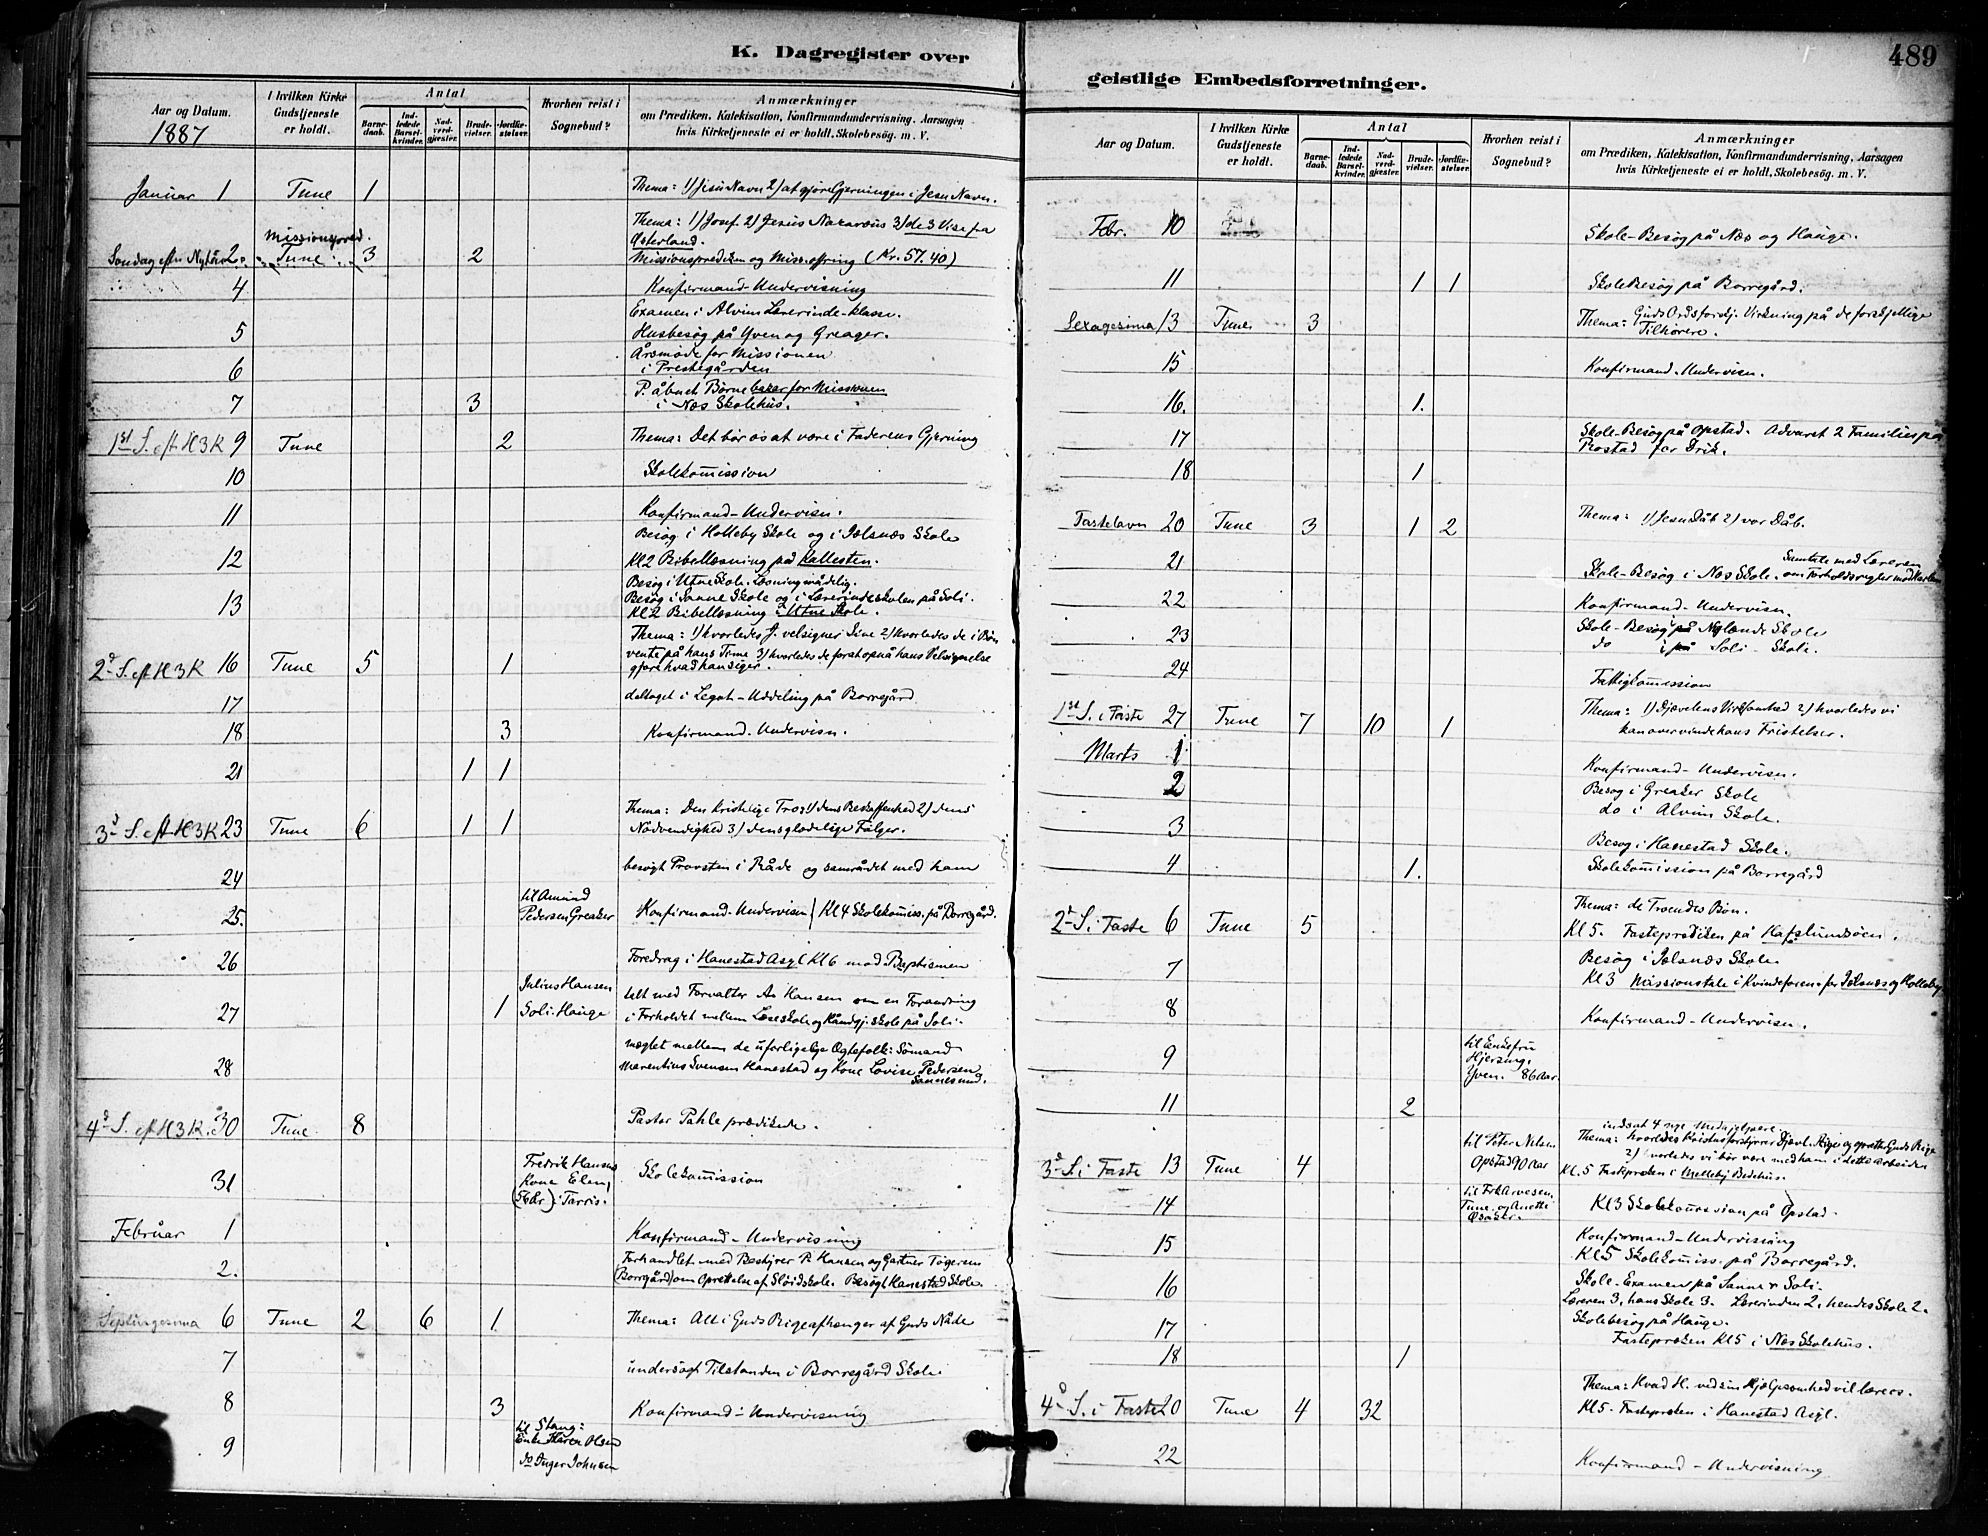 K. Dagregister over
Aar og Datum.
1887
I hvilken Kirke Gudstjeneste er holdt.
Antal
Barne-daab.
Ind-ledede Barsel-kvinder.
Nad-verd-gjester.
Brude-vielser.
Jordfæ-stelser.
Hvorhen reist i Sognebud?
Anmærkninger
om Prædiken, Katekisation, Konfirmandundervisning, Aarsagen
hvis Kirketjeneste ei er holdt, Skolebesøg m. V.
Januar 1 Tune 1 Thema: 1) Jesu Navn 2) at gjøre Gjerningen i Jesu Navn.
Thema: 1) Josef 2) Jesus Nazaræus 3) de 3 Vise fra
Østerland.
Søndag eft. Nytår 2. Tune 3 2 Missionsprediken og Miss.offring (Kr. 57.40)
4 Konfirmand-Undervisning
Examen i Alvim Lærerinde-klasse.
5 Husbesøg på Yven og Greager.
Årsmøde for Missionen
6 i Prestegården
P. åbnet Børnebazar for Missionen
7 3 i Næs Skolehus.
1st S. eft H3K 9 Tune 2 Thema: Det bør os at være i Faderens Gjerning
10 Skolekommission
11 Konfirmand-Undervisn.
Besøg i Holleby Skole og i Jelsnæs Skole
12 Kl 2 Bibellæsning på Kallesten.
Besøg i Utne Skole. Læsning mådelig.
Besøg i Sanne Skole og i Lærerindeskolen på Soli.
13 Kl 2 Bibellæsning i Utne Skole.
Thema: 1) hvorledes J. velsigner Sine 2) hvorledes de i Bøn
2d S. eft H3K 16 Tune 5 1 vente på hans Time 3) hvorledes de for at opnå hans Velsignelse
gjøre hvad han siger.
17 deltaget i Legat-Uddeling på Borregård
18 3 Konfirmand-Undervisn.
21 1 1
Thema: Den kristelige Tro: 1) dens Beskaffenhed 2) dens
3d S. eft H3K 23 Tune 6 1 1 Nødvendighed 3) dens glædelige Følger.
24 besøgt Provsten i Råde og samrådet med ham
til Amund
25. Pedersen Greaker Konfirmand-Undervisn / Kl 4 Skolekommiss. på Borregård.
26 Foredrag i Hanestad Asyl Kl 6 mod Baptismen
Julius Hansen
talt med Forvalter As Hansen om en Forandring
27 1 Soli-Hauge i Forholdet mellem Læseskole og Håndgj.skole på Soli.
mæglet mellem de uforligelige Ægtefolk: Sømand
28 Marentius Svensen Hanestad og Kone Lovise Pedersen
Sannesund.
4d S. eft H3K. 30 Tune 8 Pastor Pahle prædikede.
Fredrik Hansens
31 Kone Elen, Skolekommission
(56 År) i Tarris.
Februar 1 Konfirmand-Undervisning
Forhandlet med Bestyrer P. Hansen og Gartner Tøgersen
2. (Borrgård) om Oprettelse af Sløidskole. Besøgt Hanestad Skole
Septuagesima 6 Tune 2 6 1 Thema: Alt i Guds Rige afhænger af Guds Nåde
7 undersøgt Tilstanden i Borregård Skole
8 3 Konfirmand-Undervisning
til Stang:
9 Enke Karen Olsen
do Inger Johnsen
489
geistlige Embedsforretninger.
Aar og Datum.
I hvilken Kirke Gudstjeneste er holdt.
Antal
Barne-daab.
Ind-ledede Barsel-kvinder.
Nad-verd-gjester.
Brude-vielser.
Jordfæ-stelser.
Hvorhen reist i Sognebud?
Anmærkninger
om Prædiken, Katekisation, Konfirmandundervisning, Aarsagen
hvis Kirketjeneste ei er holdt, Skolebesøg m. V.
Febr. 10 Skole-Besøg på Næs og Hauge.
11 1 1 Skolebesøg på Borregård.
Sexagesima 13 Tune 3 Thema: Guds Ords forskj. Virkning på de forskjellige
Tilhørere.
15 Konfirmand. Undervisn.
16. 1.
17 Skole-Besøg på Opstad. Advaret 2 Familier på
Rostad for Drik.
18 1
Fastelavn 20 Tune 3 1 2 Thema: 1) Jesu Dåb 2) vor Dåb.
Samtale med Læreren
21 Skole-Besøg i Næs Skole.
22 Konfirmand-Undervisn.
23 Skole-Besøg på Nylænde Skole
do i Soli-Skole.
24 Fattigkommission
1st S. i Faste 27 Tune 7 10 1 Thema: 1) Djævelens Virksomhed 2) hvorledes vi
kan overvinde hans Fristelser.
Marts 1 Konfirmand-Undervisn.
2 Besøg i Greaker Skole
do i Alvim Skole.
3 Besøg i Hanestad Skole.
4 1. Skolekommission på Borregård
2d S. i Faste 6 Tune 5 Thema: de Troendes Bøn.
Kl 5. Fasteprediken på Hafslundsøen.
7 Besøg i Jelsnæs Skole
Kl 3 Missionstale i Kvindeforen. for Jelsnæs og Holleby
8 Konfirmand-Undervisn.
9 til Enkefru
Hjersing,
Yven. 86 Aar.
11 2
indsat 4 nye Medhjelpere.
til Peter Nilsen Thema: hvorledes Kristus forstyrrer Djævl. Rige og opretter Guds Rige
3d S. i Faste 13 Tune 4 Opstad 90 Aar 2) hvorledes vi bør være med ham i dette Arbeide
Kl. 5 Fasteprken i Melleby Bedehus.
til Frk Arvesen,
14 Tune og Anette Kl 3 Skolekommission på Opstad.
15 Konfirmand-Undervisning
Kl 5 Skolekommiss. på Borregård.
16 Skole-Examen på Sanne & Soli
Læreren 3, hans Skole 3. Lærerinden 2, hendes Skole 2.
17 Skolebesøg på Hauge.
Fasteprken Kl 5 i Næs Skolehus.
18 1
4d S. i Faste 20 Tune 4 32 Thema: Hvad H. ved sin Hjælpsomhed vil lære os.
Kl 5. Fasteprken i Hanestad Asyl.
22 Konfirmand-Undervisning